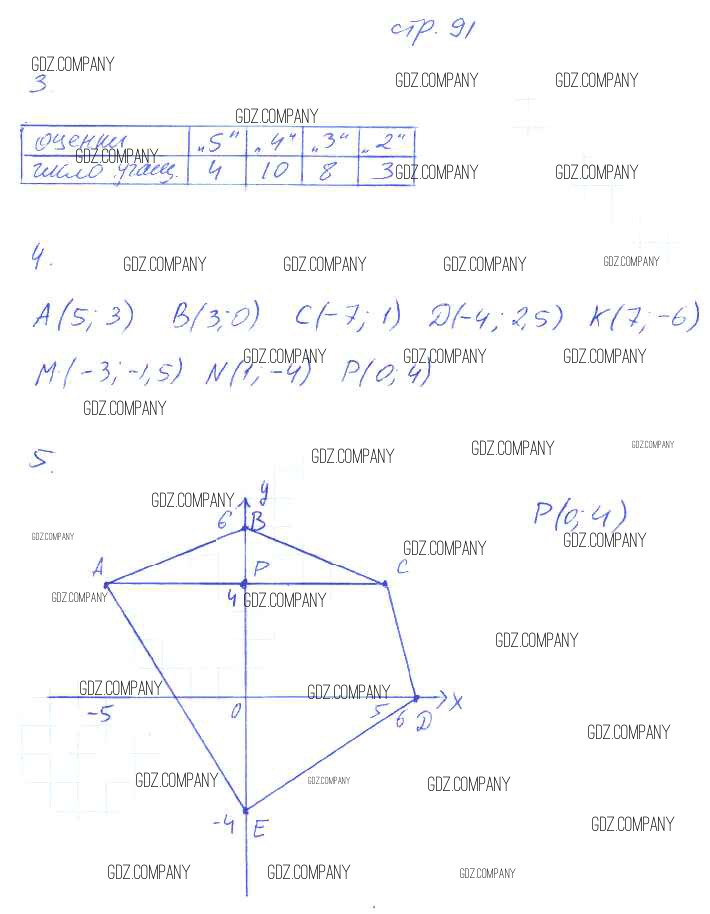 стр. 91
GDZ.COMPANY
3. GDZ.COMPANY GDZ.COMPANY
GDZ.COMPANY
оценки „5“ „4“ „3“ „2“
GDZ.COMPANY
число учащ. 4 10 8 3 GDZ.COMPANY GDZ.COMPANY
4. GDZ.COMPANY GDZ.COMPANY GDZ.COMPANY GDZ.COMPANY
A(5; 3) B(3; 0) C(-7; 1) D(-4; 2,5) K(7; -6)
GDZ.COMPANY GDZ.COMPANY GDZ.COMPANY
M(-3; -1,5) N(1; -4) P(0; 4)
GDZ.COMPANY
5. GDZ.COMPANY GDZ.COMPANY GDZ.COMPANY
GDZ.COMPANY y
6 B P(0; 4)
GDZ.COMPANY GDZ.COMPANY GDZ.COMPANY
A P C
GDZ.COMPANY 4 GDZ.COMPANY
GDZ.COMPANY
GDZ.COMPANY GDZ.COMPANY x
-5 0 5 6 D
GDZ.COMPANY
GDZ.COMPANY GDZ.COMPANY GDZ.COMPANY
-4 E GDZ.COMPANY
GDZ.COMPANY GDZ.COMPANY GDZ.COMPANY